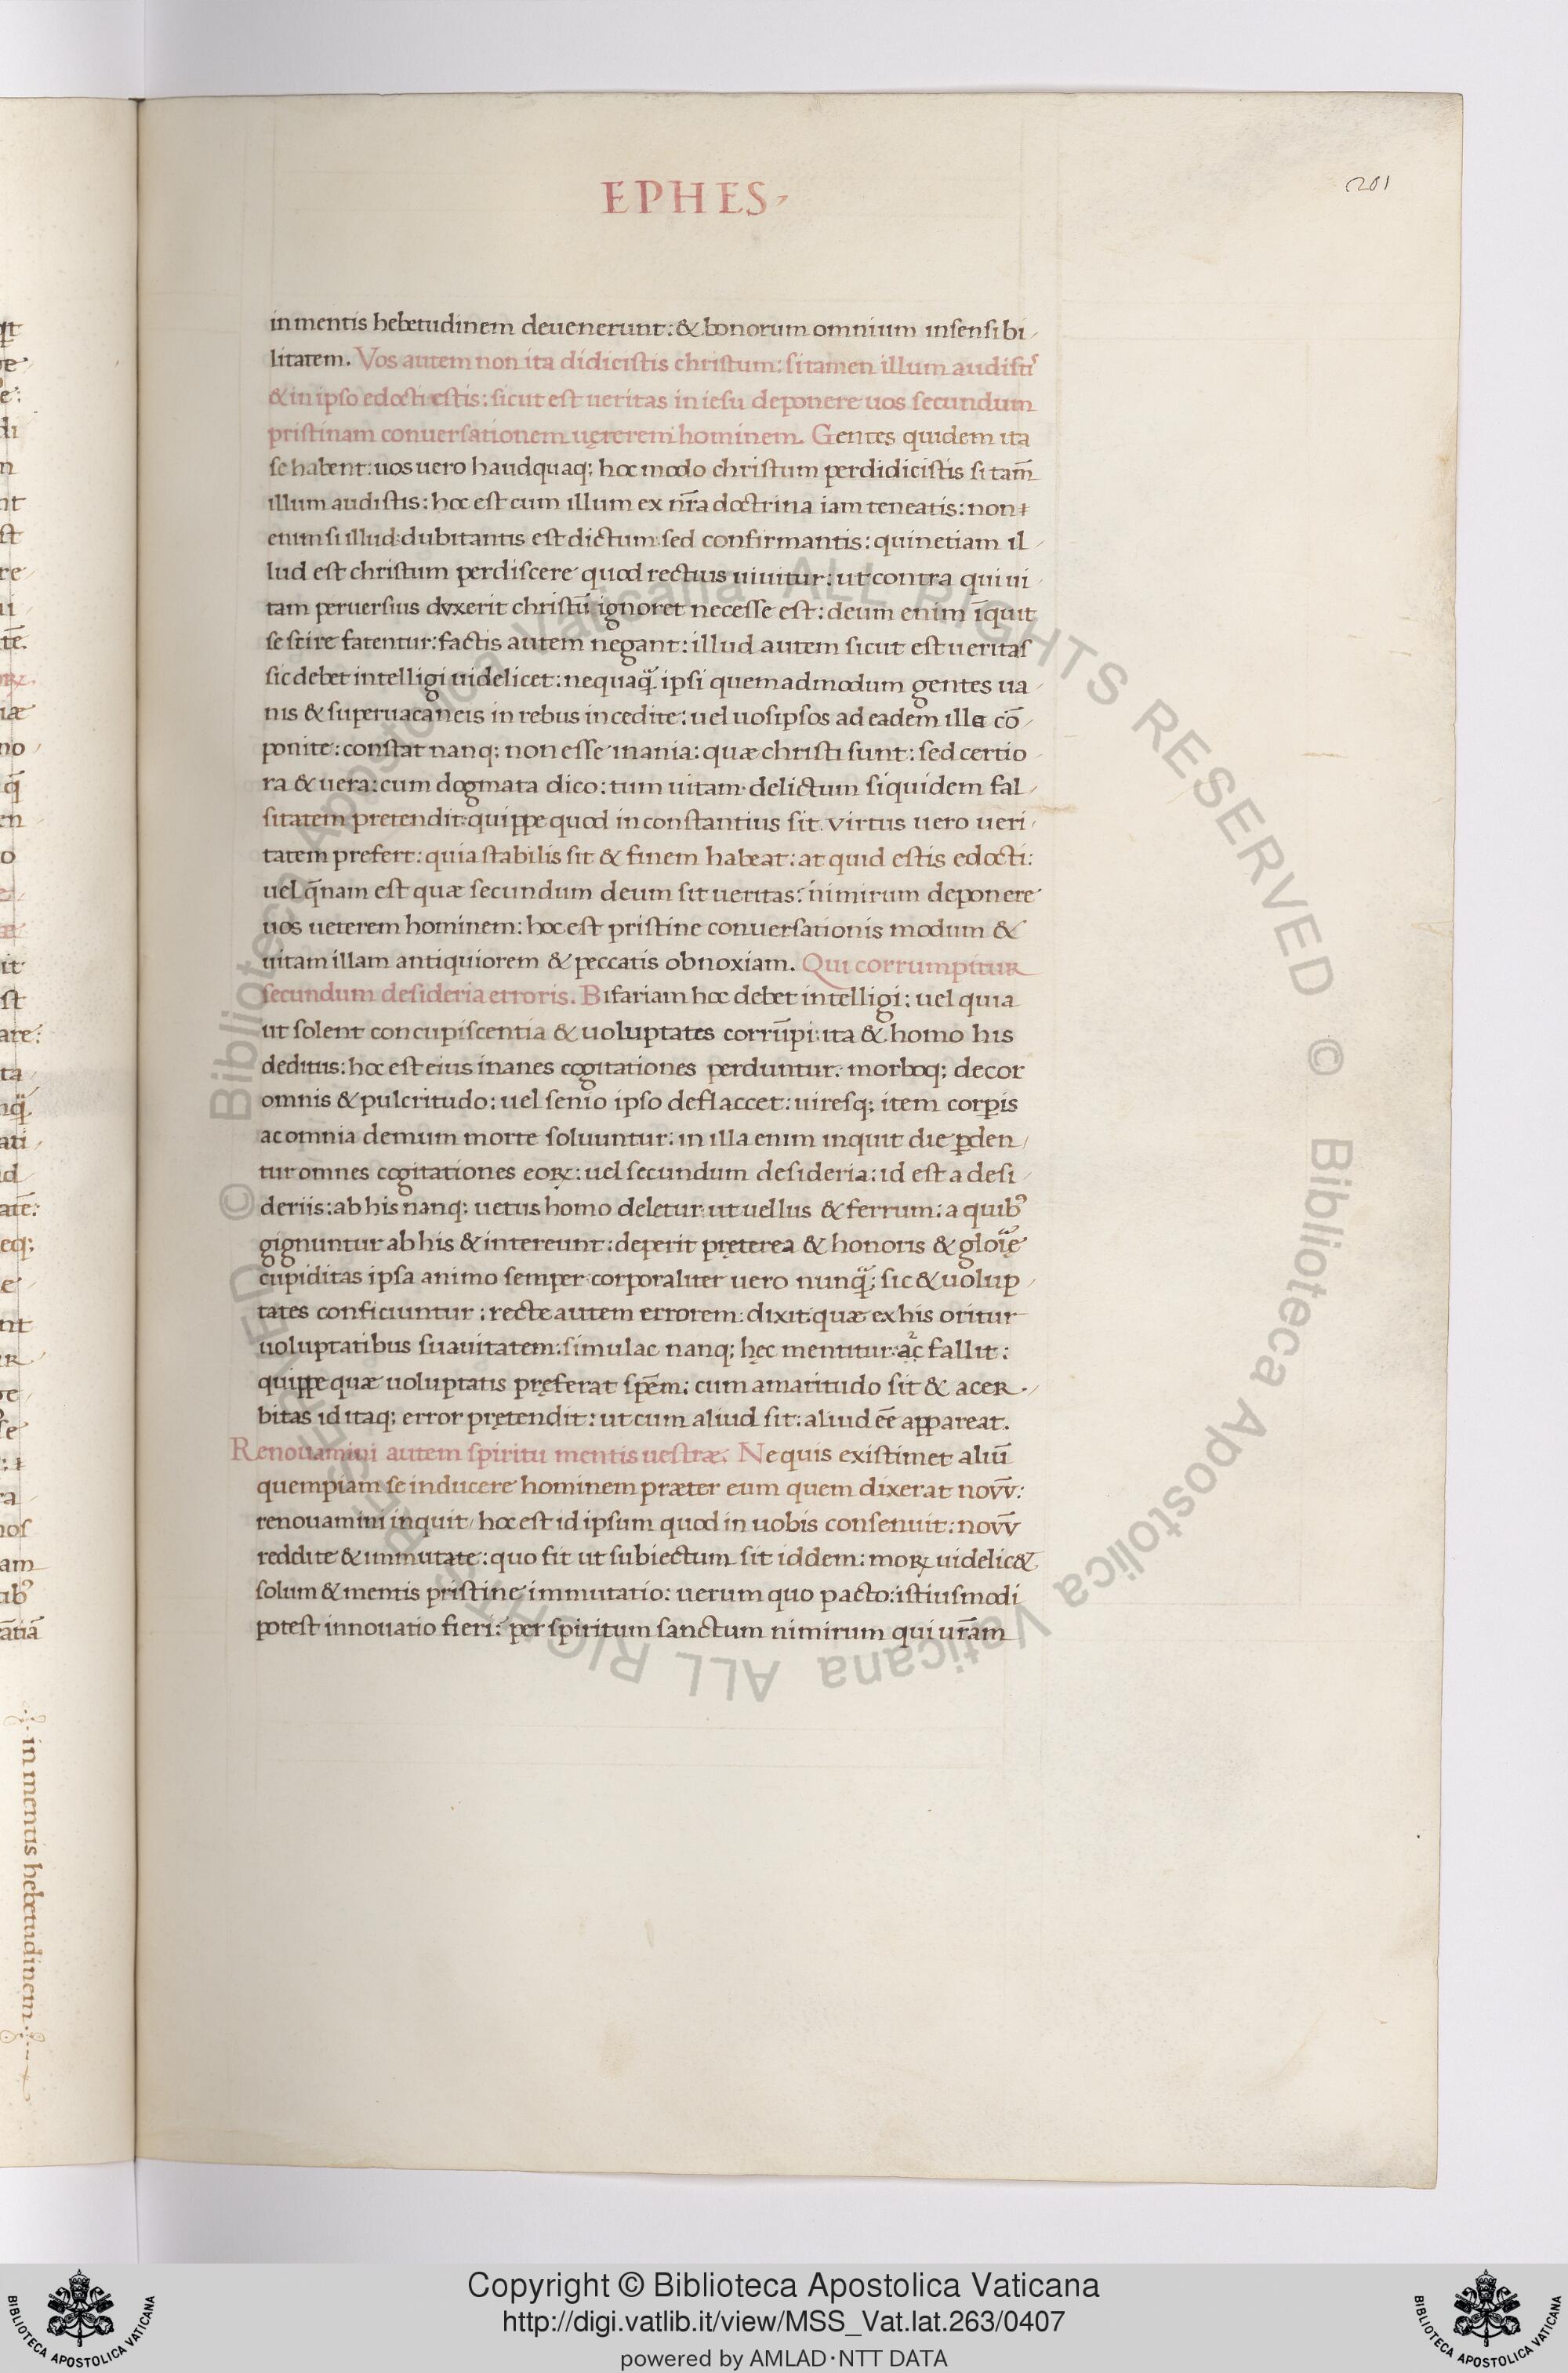 EPHES
201
in mentis hebetudinem deuenerunt: & bonorum omnium insensibi
litatem. Vos autem non ita didicistis christum: si tamen illum audistı᷒
& in ipso edocti estis: sicut est ueritas in iesu deponere uos secundum
pristinam conuersationem uęterem hominem. Gentes quidem ita
se habent: uos uero haudquaq; hoc modo christum perdidicistis si tam̄
illum audistis: hoc est cum illum ex nr̄a doctrina iam teneatis: non
enim si illud: dubitantis est dictum: sed confirmantis: quinetiam il
lud est christum perdiscere quod rectius uiuitur: ut contra qui ui
tam peruersius dvxerit christū ignoret necesse est: deum enim īquit
se scire fatentur: factis autem negant: illud autem sicut est ueritas
sic debet intelligi uidelicet: nequaq̃ ipsi quemadmodum gentes ua
nis & superuacaneis in rebus incedite: uel uosipsos ad eadem illa cō
ponite: constat nanq; non esse inania: quæ christi sunt: sed certio
ra & uera: cum dogmata dico: tum uitam. delictum siquidem fal
sitatem pretendit: quippe quod inconstantius sit. virtus uero ueri
tatem prefert: quia stabilis sit & finem habeat: at quid estis edocti:
uel q̄nam est quæ secundum deum sit ueritas: nimirum deponere
uos ueterem hominem: hoc est pristine conuersationis modum &
uitam illam antiquiorem & peccatis obnoxiam. Qui corrumpitur
secundum desideria erroris. Bifariam hoc debet intelligi: uel quia
ut solent concupiscentia & uoluptates corrūpi: ita & homo his
deditus: hoc est eius inanes cogitationes perduntur: morboq; decor
omnis & pulcritudo: uel senio ipso deflaccet: uiresq; item corꝑis
ac omnia demum morte soluuntur: in illa enim inquit die ꝑden
tur omnes cogitationes eoꝝ: uel secundum desideria: id est a desi
deriis: ab his nanq; uetus homo deletur: ut uellus & ferrum: a quibꝰ
gignuntur ab his & intereunt: deperit pręterea & honoris & glorīę
cupiditas ipsa animo semper corporaliter uero nunq̃; sic & uolup
tates conficiuntur: recte autem errorem: dixit: quæ ex his oritur
uoluptatibus suauitatem: simulac nanq; hęc mentitur: ac fallit:
quippe quæ uoluptatis pręferat spēm: cum amaritudo sit & acer
bitas id itaq; error prętendit: ut cum aliud sit: aliud eē appareat.
Renouamini autem spiritu mentis uestræ. Ne quis existimet aliū
quempiam se inducere hominem præter eum quem dixerat novv̄:
renouamini inquit / hoc est id ipsum quod in uobis consenuit: novv̄
reddite & immutate: quo fit ut subiectum sit iddem: moꝝ uidelic&
solum & mentis pristine immutatio: uerum quo pacto: istiusmodi
potest innouatio fieri: per spiritum sanctum nimirum qui ur̄am
in mentis hebetudinem
Copyright © Biblioteca Apostolica Vaticana
http://digi.vatlib.it/view/MSS_Vat.lat.263/0407
powered by AMLAD·NTT DATA
BIBLIOTECA APOSTOLICA VATICANA
BIBLIOTECA APOSTOLICA VATICANA
© Biblioteca Apostolica Vaticana ALL RIGHTS RESERVED © Biblioteca Apostolica Vaticana ALL RIGHTS RESERVED